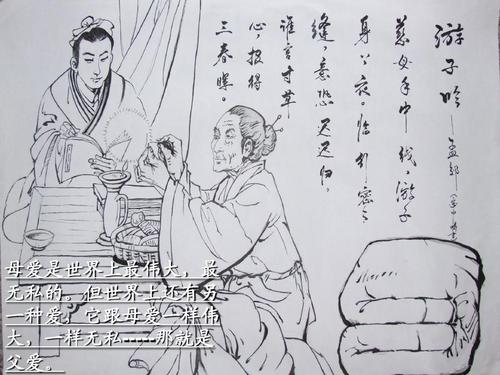 游子吟——孟郊
慈母手中线，游子
身上衣。临行密密
缝，意恐迟迟归。
谁言寸草
心，报得
三春晖。
母爱是世界上最伟大，最
无私的。但世界上还有另
一种爱，它跟母爱一样伟
大，一样无私-----那就是
父爱。